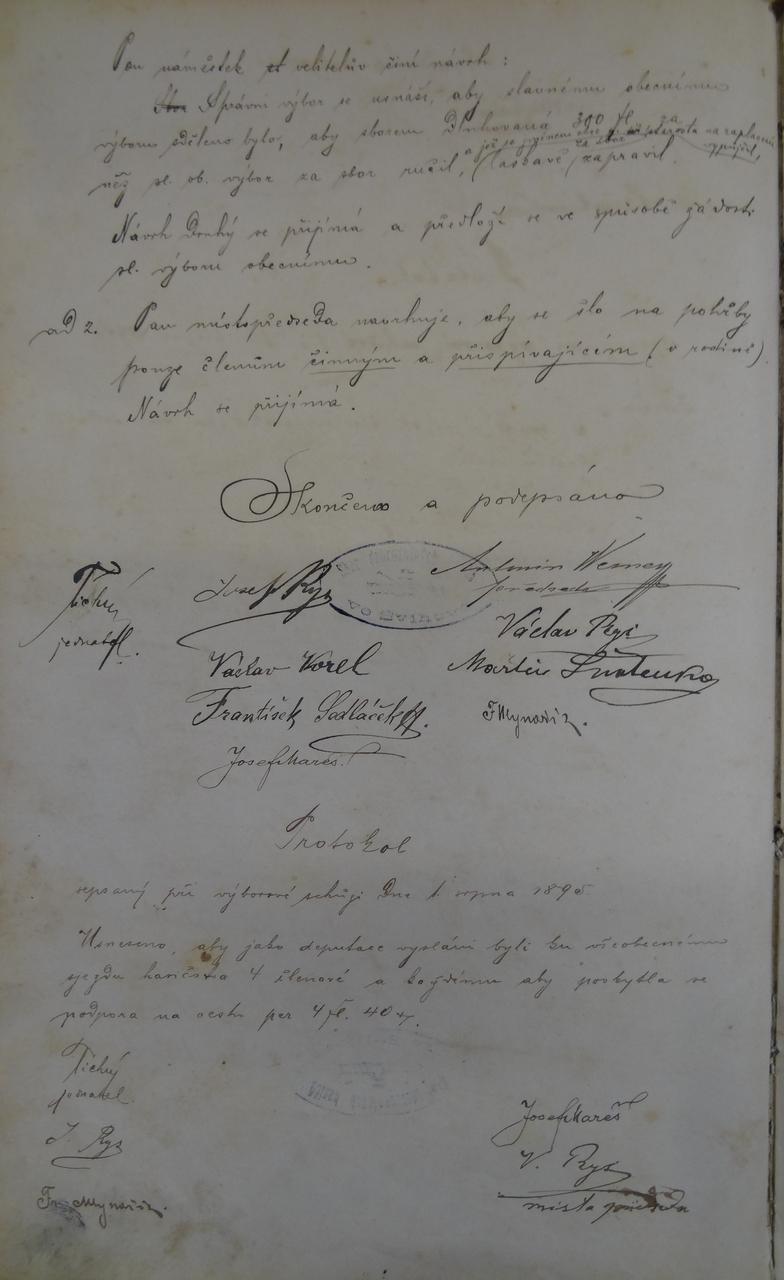 Pan náměstek velitelův činí návrh:
Správní výbor se usnáší, aby slavnému obecnímu
výboru sděleno bylo, aby sborem dluhovaná 300 fl za
něž sl. ob. výbor za sbor ručil, laskavě zapravil.
Návrh Druhý se přijímá a předloží se ve spůsobě žádosti
sl. výboru obecnímu.
ad 2. Pan místopředseda navrhuje, aby se šlo na pohřby
pouze členům činným a přispívajícím (v rodině)
Návrh se přijímá.
Skončeno a podepsáno
Tichý
jednatel.
Josef Rys
Antonín
předseda
Václav Rys
Václav Korel
Martin
František Sedláček
F Mynařík.
Josef Mareš.
Protokol
sepsaný při výborové schůzi dne 1. srpna 1895
Usneseno, aby jako deputace vysláni byli ku všeobecnému
sjezdu hasičstva 4 členové a každému aby poskytla se
podpora na cestu per 4 fl. 40 kr.
Tichý
jednatel.
J. Rys
Fr. Mynařík.
Josef Mareš
V. Rys
místopředseda